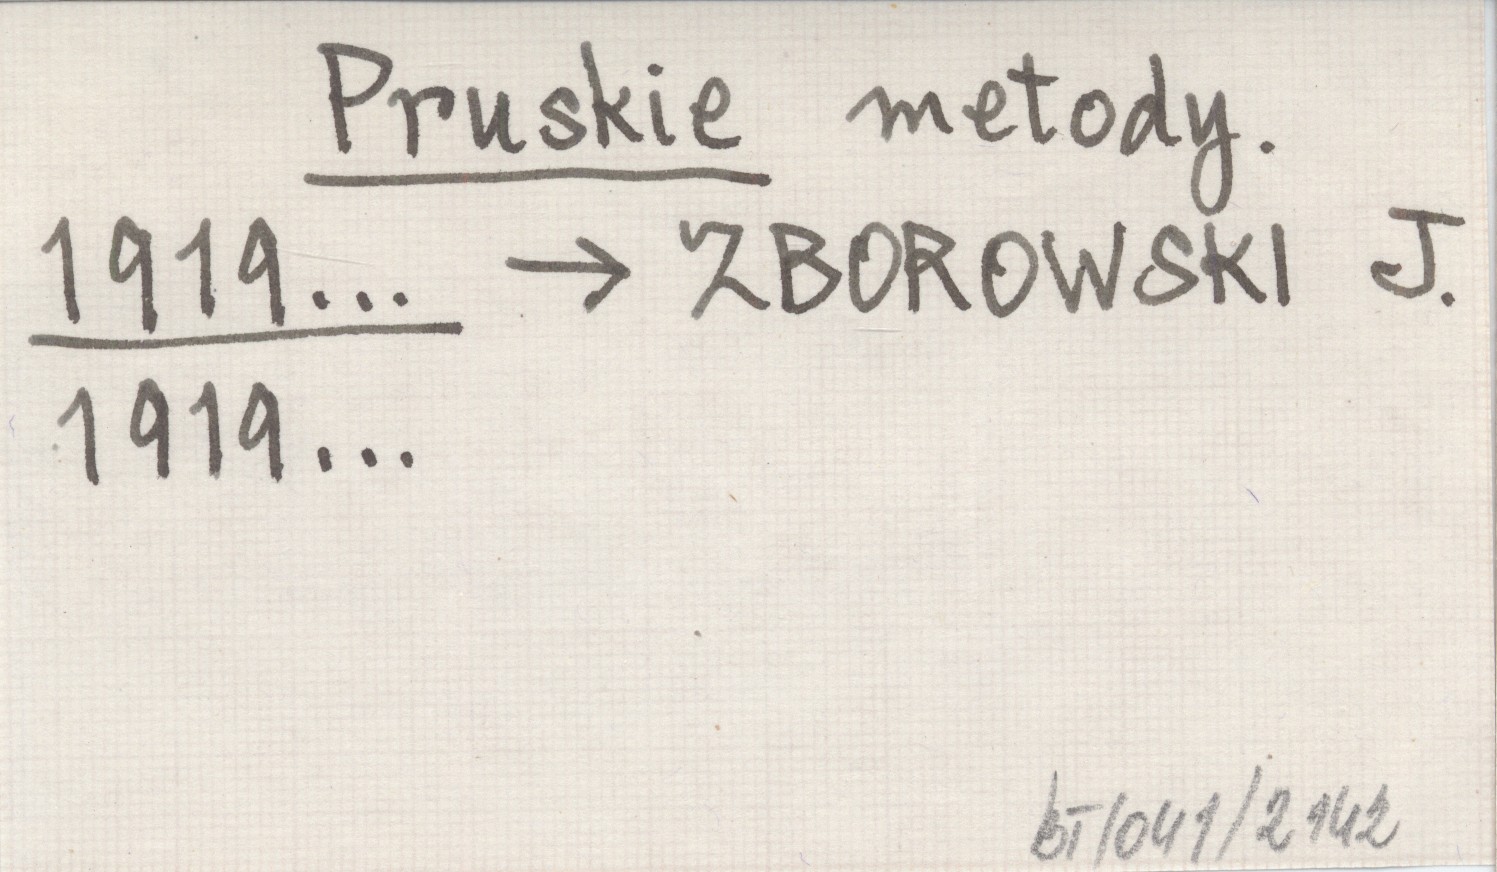 Pruskie metody.
1919... → ZBOROWSKI J.
1919...
bī/041/2142